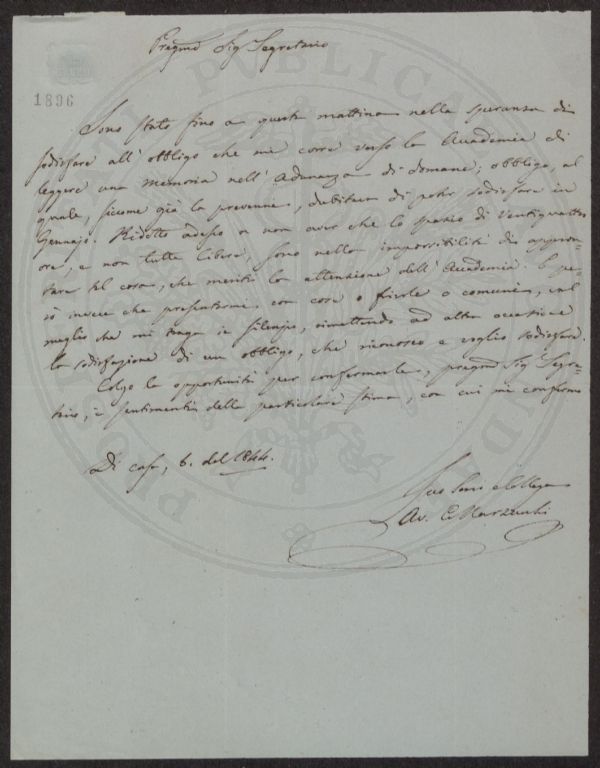 Pregmo Sigr Segretario
1896
Sono stato fino a questa mattina nella speranza di
sodisfare all'obbligo che mi corre verso la Accademia di
leggere una Memoria nell'Adunanza di domane; obbligo, al
quale, siccome già la prevenni, dubitava di poter sodisfare in
Gennajo. Ridotto adesso a non aver che lo spazio di Ventiquattro
ore, e non tutte libere, sono nella impossibilità di appron-
tare tal cosa, che meriti la attenzione dell'Accademia. E per-
ciò invece che presentarmi con cose o frivole o comuni, val
meglio che mi tenga in silenzio, rimettendo ad altra occasione
la sodisfazione di un obbligo, che riconosco e voglio sodisfare.
Colgo la opportunità per confermarle, pregmo Sigr Segre-
tario, i sentimenti della particolare stima, con cui mi confermo
Di casa, 6. del 1844.
Suo Servo e Collega
Av. C. Marzucchi
PUBLICA
PROSPERITATI